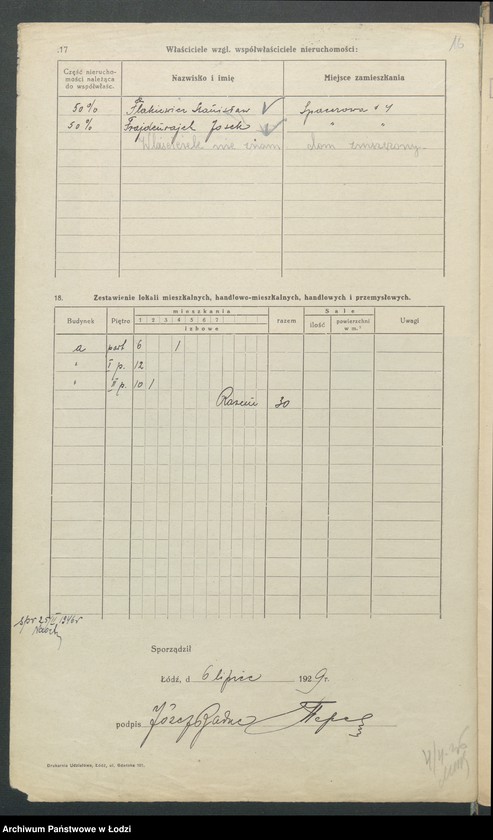 17 Właściciele wzgl. współwłaściciele nieruchomości: 16
Część nierucho-
mości należąca
do współwłaśc.
Nazwisko i imię
Miejsce zamieszkania
50% Flakiewicz Stanisław
50% Frajdenrajch Josek " "
Właściciele nie znani dom
18. Zestawienie lokali mieszkalnych, handlowo-mieszkalnych, handlowych i przemysłowych.
Budynek Piętro mieszkania razem Sale Uwagi
1 2 3 4 5 6 7
izbowe
ilość powierzchni w m.²
a part 6 1
" I p. 12
" II p. 10 1
Razem 30
spr 25 1946r
Sporządził
Łódź, d 6 lipiec 1929 r.
podpis Józef
Drukarnia Udziałowa, Łódź, ul.
Archiwum Państwowe w Łodzi